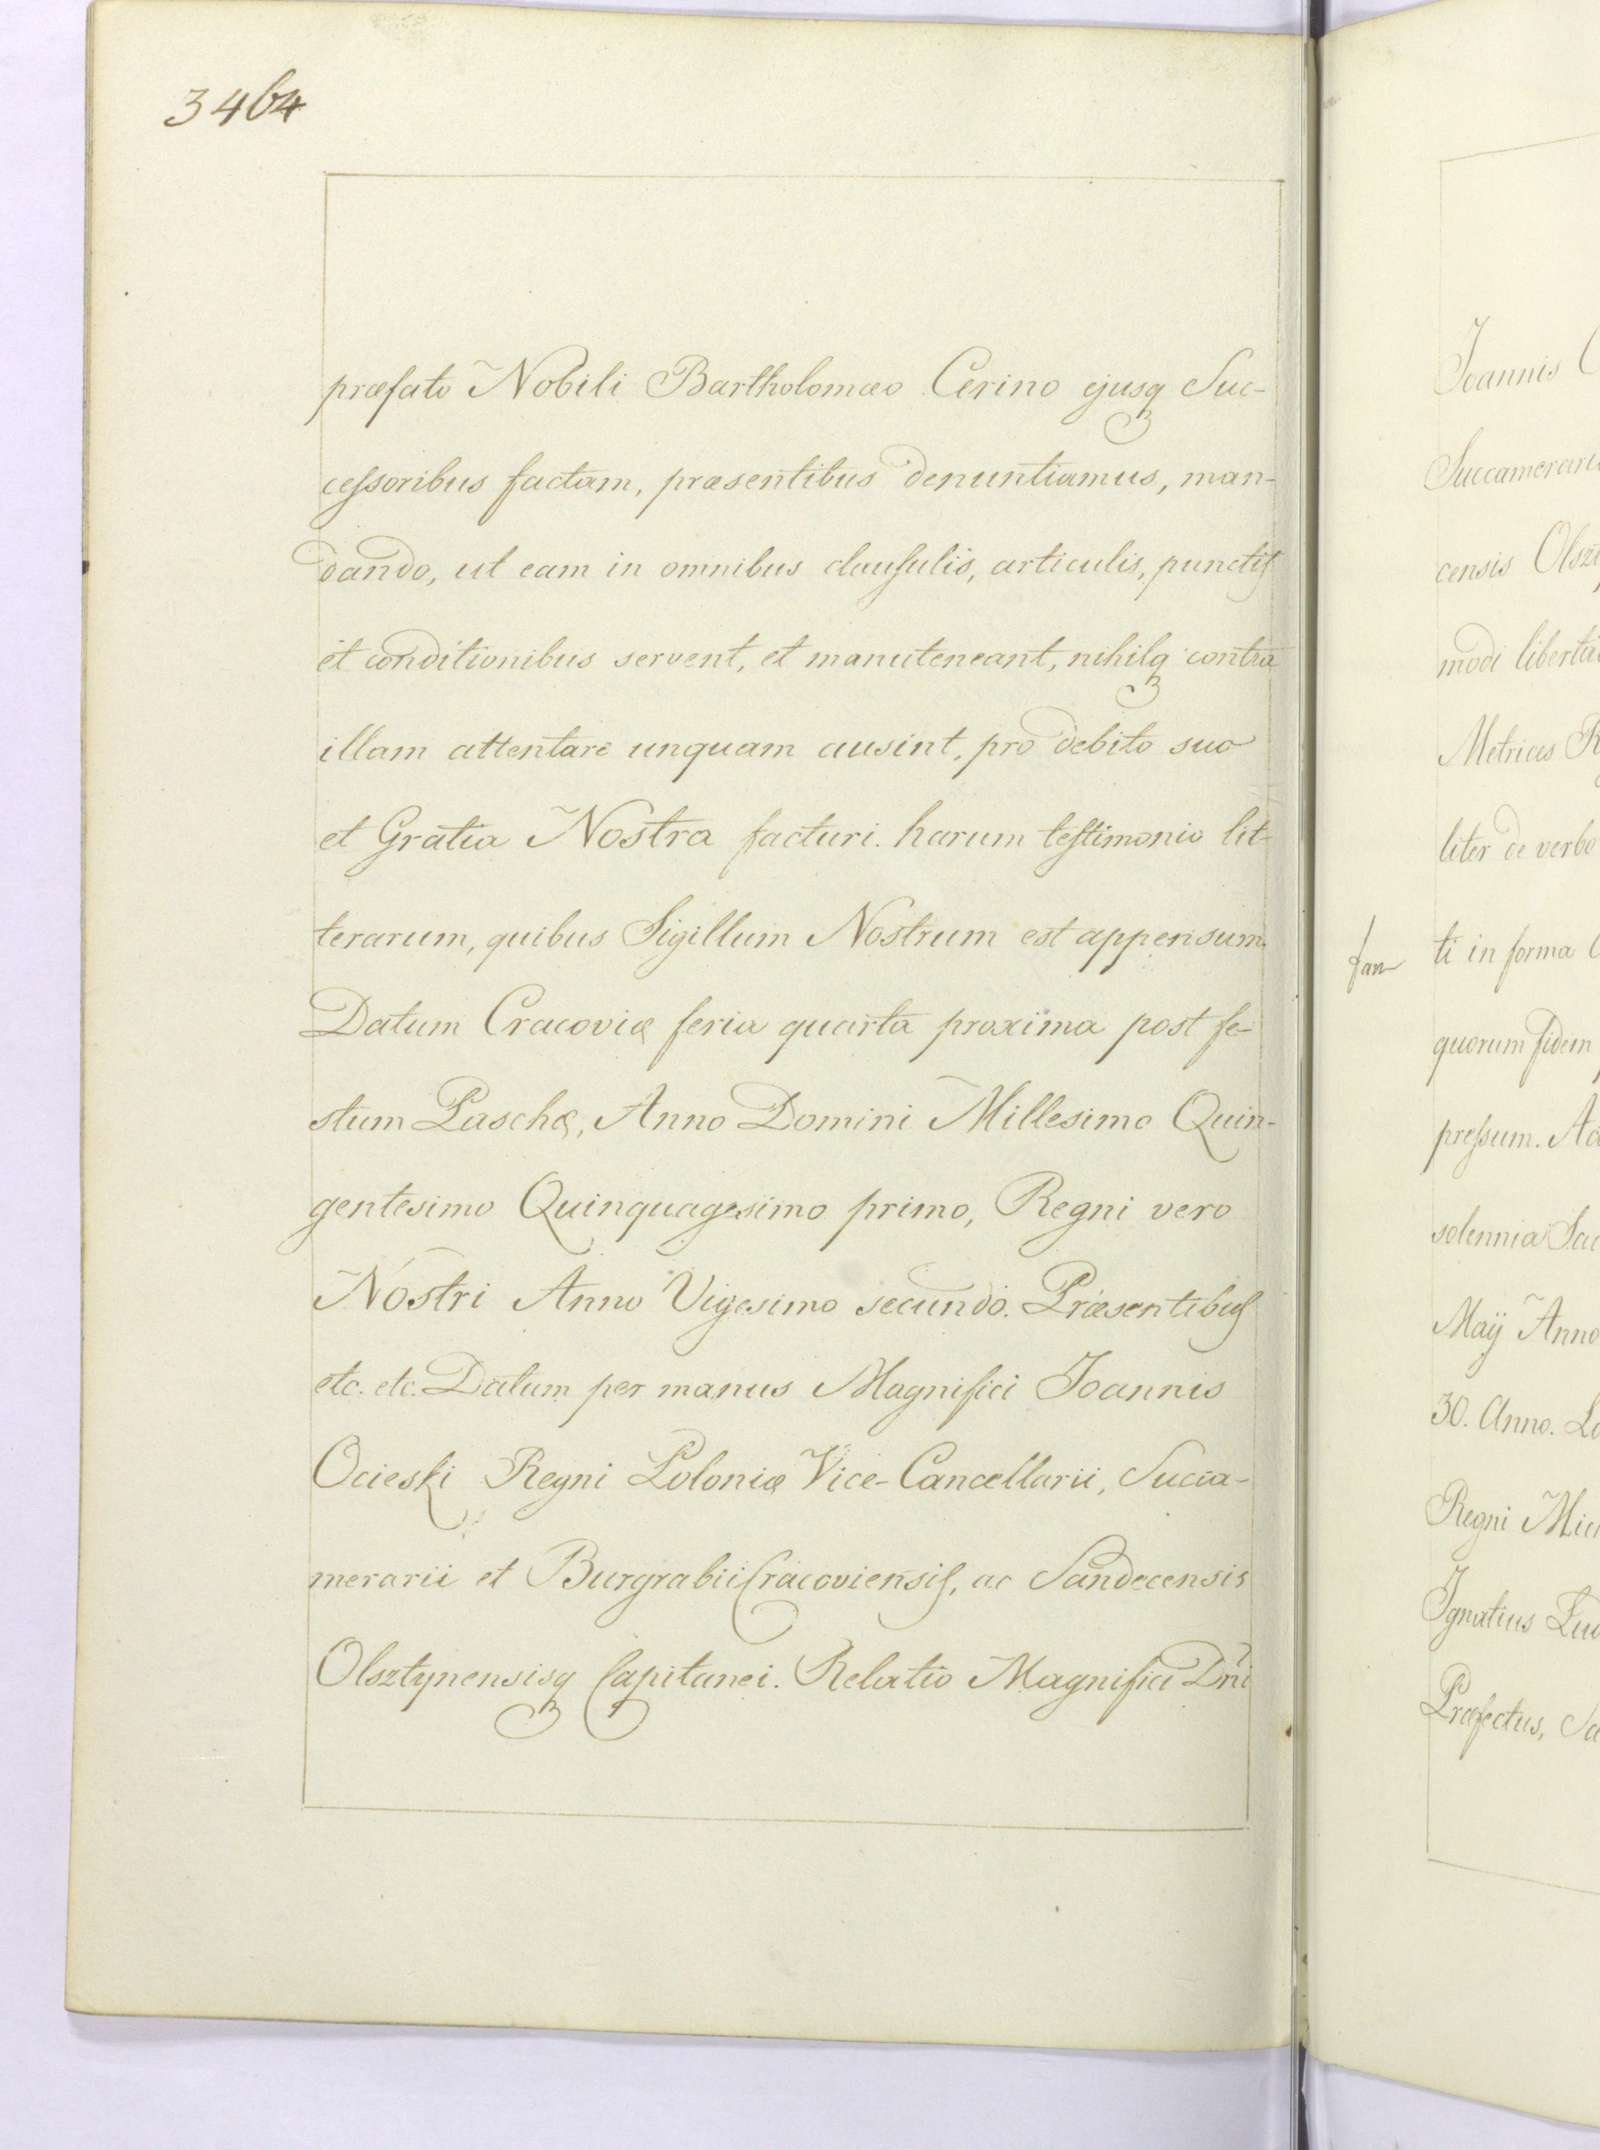 3464
præfato Nobili Bartholomæo Cerino ejusq Suc-
cessoribus factam, præsentibus denuntiamus, man-
dando, ut eam in omnibus clausulis, articulis, punctis
et conditionibus servent, et manuteneant, nihilq contra
illam attentare unquam ausint, pro debito suo
et Gratia Nostra facturi. harum testimonio lit-
terarum, quibus Sigillum Nostrum est appensum.
Datum Cracoviæ feria quarta proxima post fe-
stum Paschæ, Anno Domini Millesimo Quin-
gentesimo Quinquagesimo primo, Regni vero
Nostri Anno Vigesimo secundo. Præsentibus
etc. etc. Datum per manus Magnifici Joannis
Ocieski Regni Poloniæ Vice-Cancellarii, Succa-
merarii et Burgrabii Cracoviensis, ac Sandecensis
Olsztynensisq Capitanei. Relatio Magnifici Dni
Joannis
Succamerarii
censis Olszt
modi liberta
Metrices R
liter de verbo
ti in forma
quorum fidem
pressum. Ac
solennia Sac
Maÿ Anno
30. Anno. Do
Regni Mi
Ignatius Lu
Præfectus, Sa